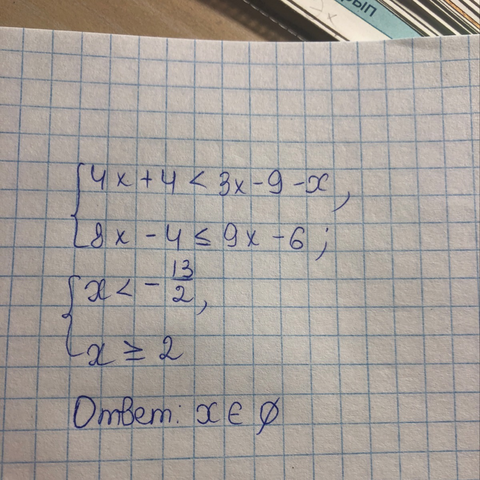 { 4x + 4 < 3x - 9 - x,
8x - 4 ≤ 9x - 6;
{ x < - 13/2,
x ≥ 2
Ответ: x ∈ ∅